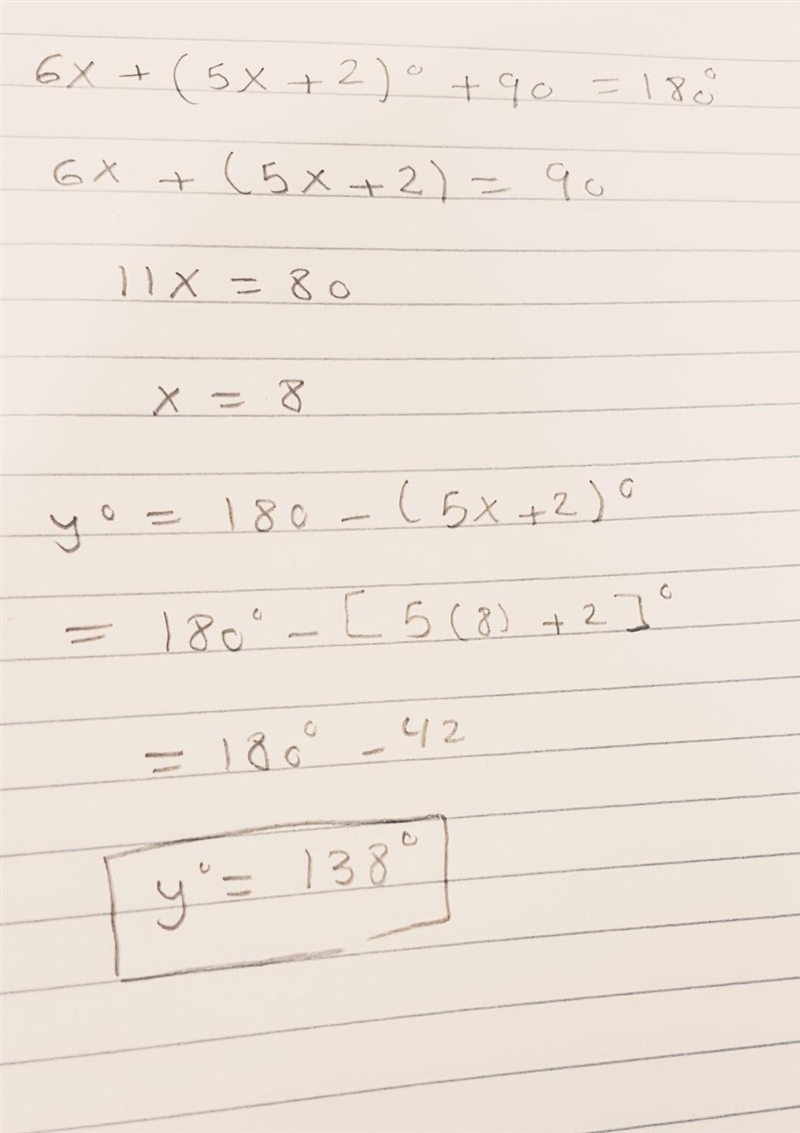 6x + (5x + 2)° + 90 = 180°
6x + (5x + 2) = 90
11x = 80
x = 8
y° = 180 - (5x + 2)°
= 180° - [5(8) + 2]°
= 180° - 42
y° = 138°